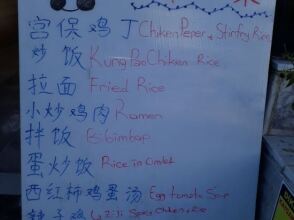 宫保鸡丁 Chiken Peper & Stirfry Rice
炒饭 Kung Pao Chiken Rice
拉面 Fried Rice
小炒鸡肉 Ramen
拌饭 Bibimbap
蛋炒饭 Rice in Omlet
西红柿鸡蛋汤 Egg tomato Soup
辣子鸡 La Ziji Spicy Chiken & Rice